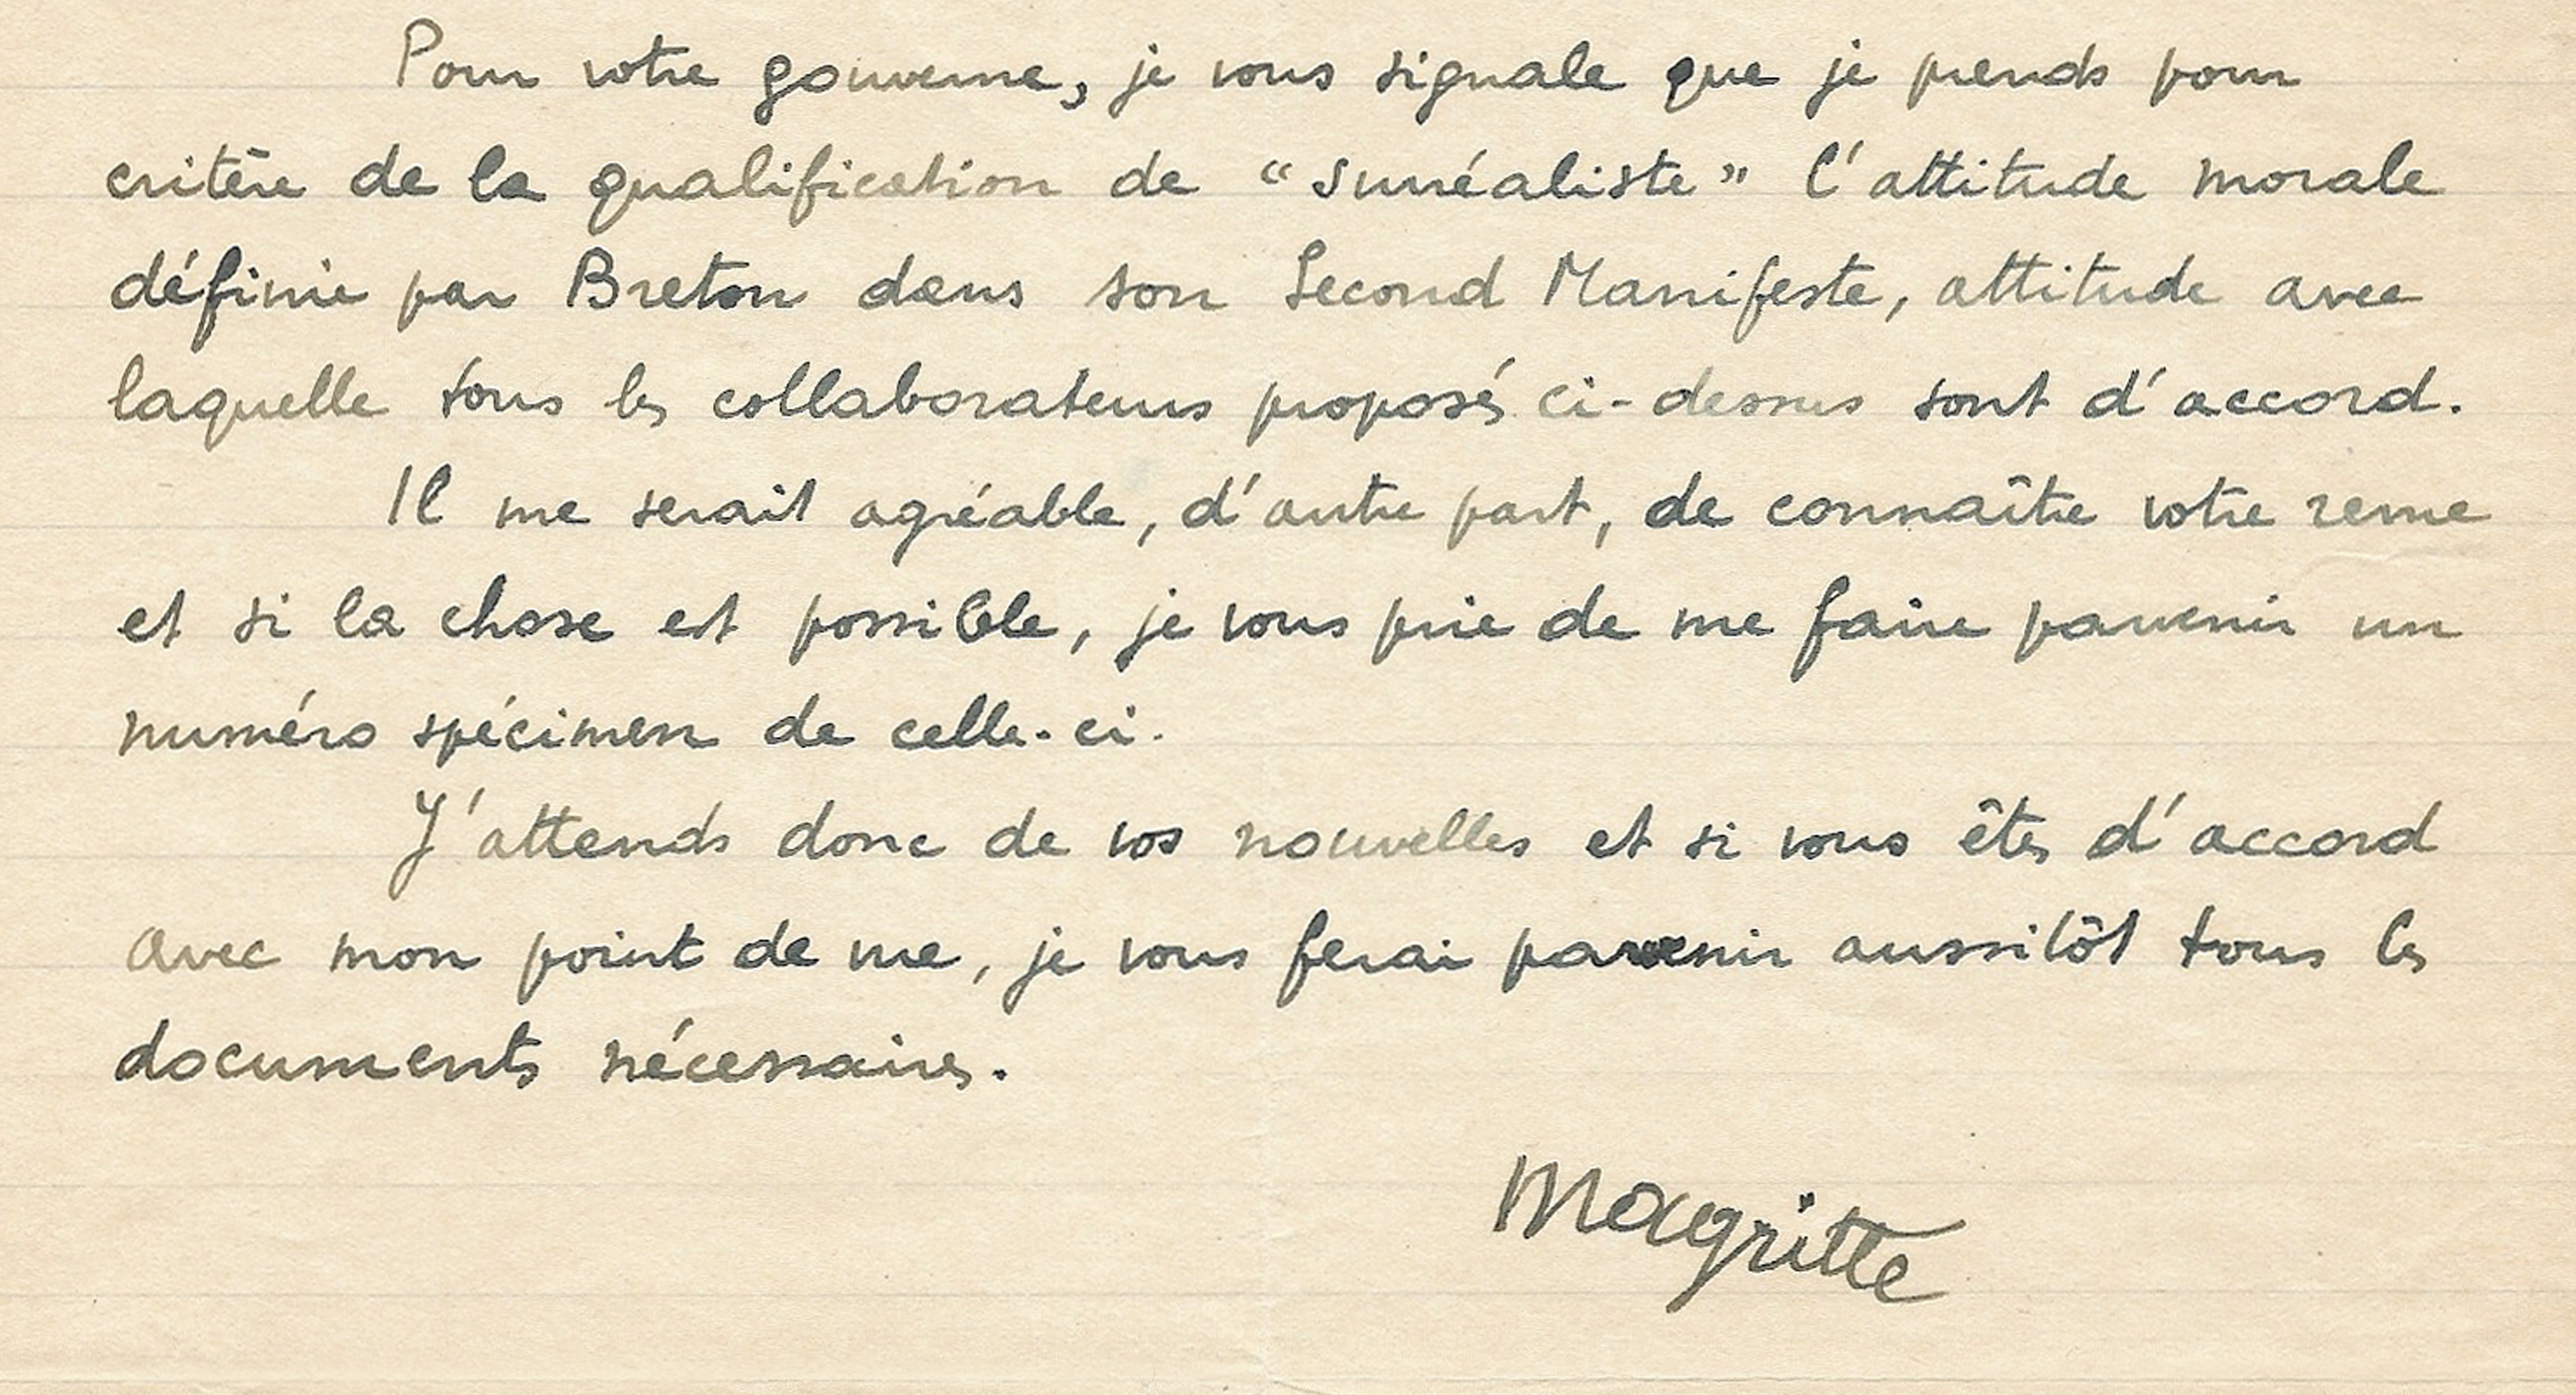 Pour votre gouverne, je vous signale que je prends pour
critère de la qualification de “surréaliste” l'attitude morale
définie par Breton dans son Second Manifeste, attitude avec
laquelle tous les collaborateurs proposés ci-dessus sont d'accord.
Il me serait agréable, d'autre part, de connaître votre revue
et si la chose est possible, je vous prie de me faire parvenir un
numéro spécimen de celle-ci.
J'attends donc de vos nouvelles et si vous êtes d'accord
avec mon point de vue, je vous ferai parvenir aussitôt tous les
documents nécessaires.
Magritte